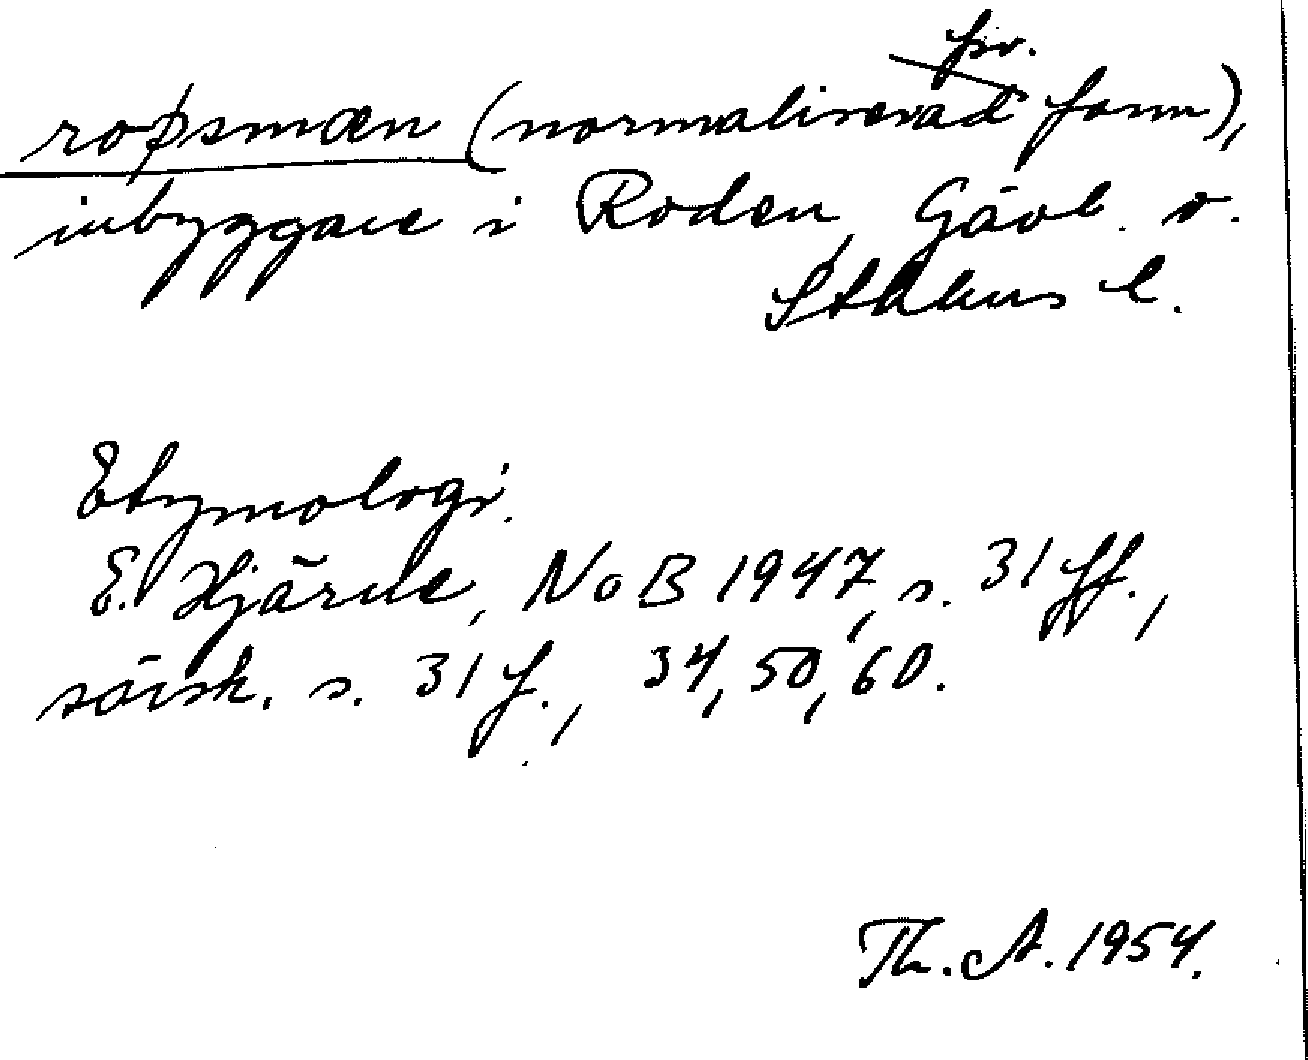 fsv.
roþsmæn (normaliserad form),
inbyggare i Roden, Gävl. o.
Sthlms l.
Etymologi.
E. Hjärne, NoB 1947, s. 31 ff.,
särsk. s. 31 f., 34, 50, 60.
Th. A. 1954.